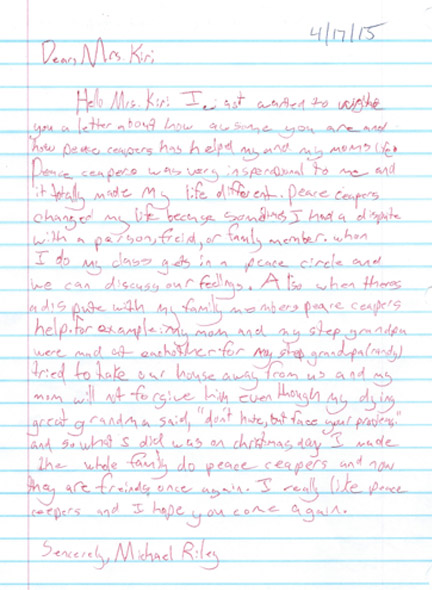 4/17/15
Dear, Mrs. Kiri
Hello Mrs. Kiri I just wanted to write
you a letter about how ausome you are and
how peace ceapers has helpd my and my moms life.
Peace ceapers was very insperasional to me and
it totally made my life different. Peace ceapers
changed my life because somtimes I had a dispute
with a person, freid, or famly member. when
I do my class gets in a peace circle and
we can discuss our feelings. Also when theres
a dispute with my family members peace ceapers
help. for example: my mom and my step grandpa
were mad at eachother for my step grandpa (randy)
tried to take our house away from us and my
mom will not forgive him even though my dying
great grandma said, "don't hate, but face your problems"
and so what I did was on christmas day I made
the whole family do peace ceapers and now
they are freinds once again. I really like peace
ceepers and I hope you come again.
Sencerely, Michael Riley